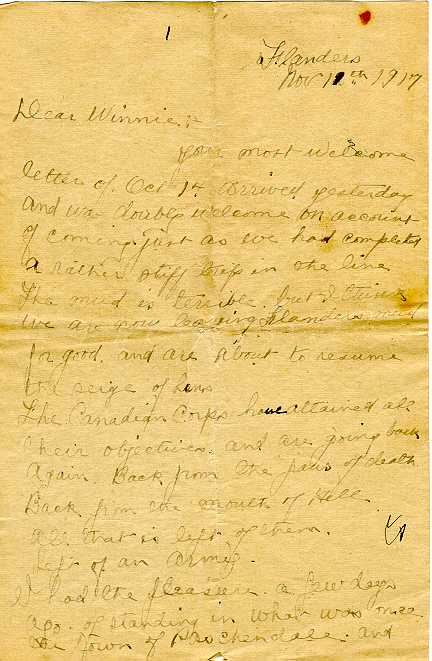 1
Flanders
Nov 12th 1917
Dear Winnie :-
your most welcome
letter of Oct 14 arrived yesterday
and was doubly welcome on account
of coming just as we had completed
a rather stiff trip in the line
The mud is terrible, but I think
we are now leaving Flanders mud
for good. and are about to resume
the seige of Lens
The Canadian Corps have attained all
their objectives. and are going back
again. Back from the jaws of death
Back from the mouth of Hell
all that is left of them.
Left of an Army.
I had the pleasure. a few days
ago. of standing in what was once
the town of Paschendale. and